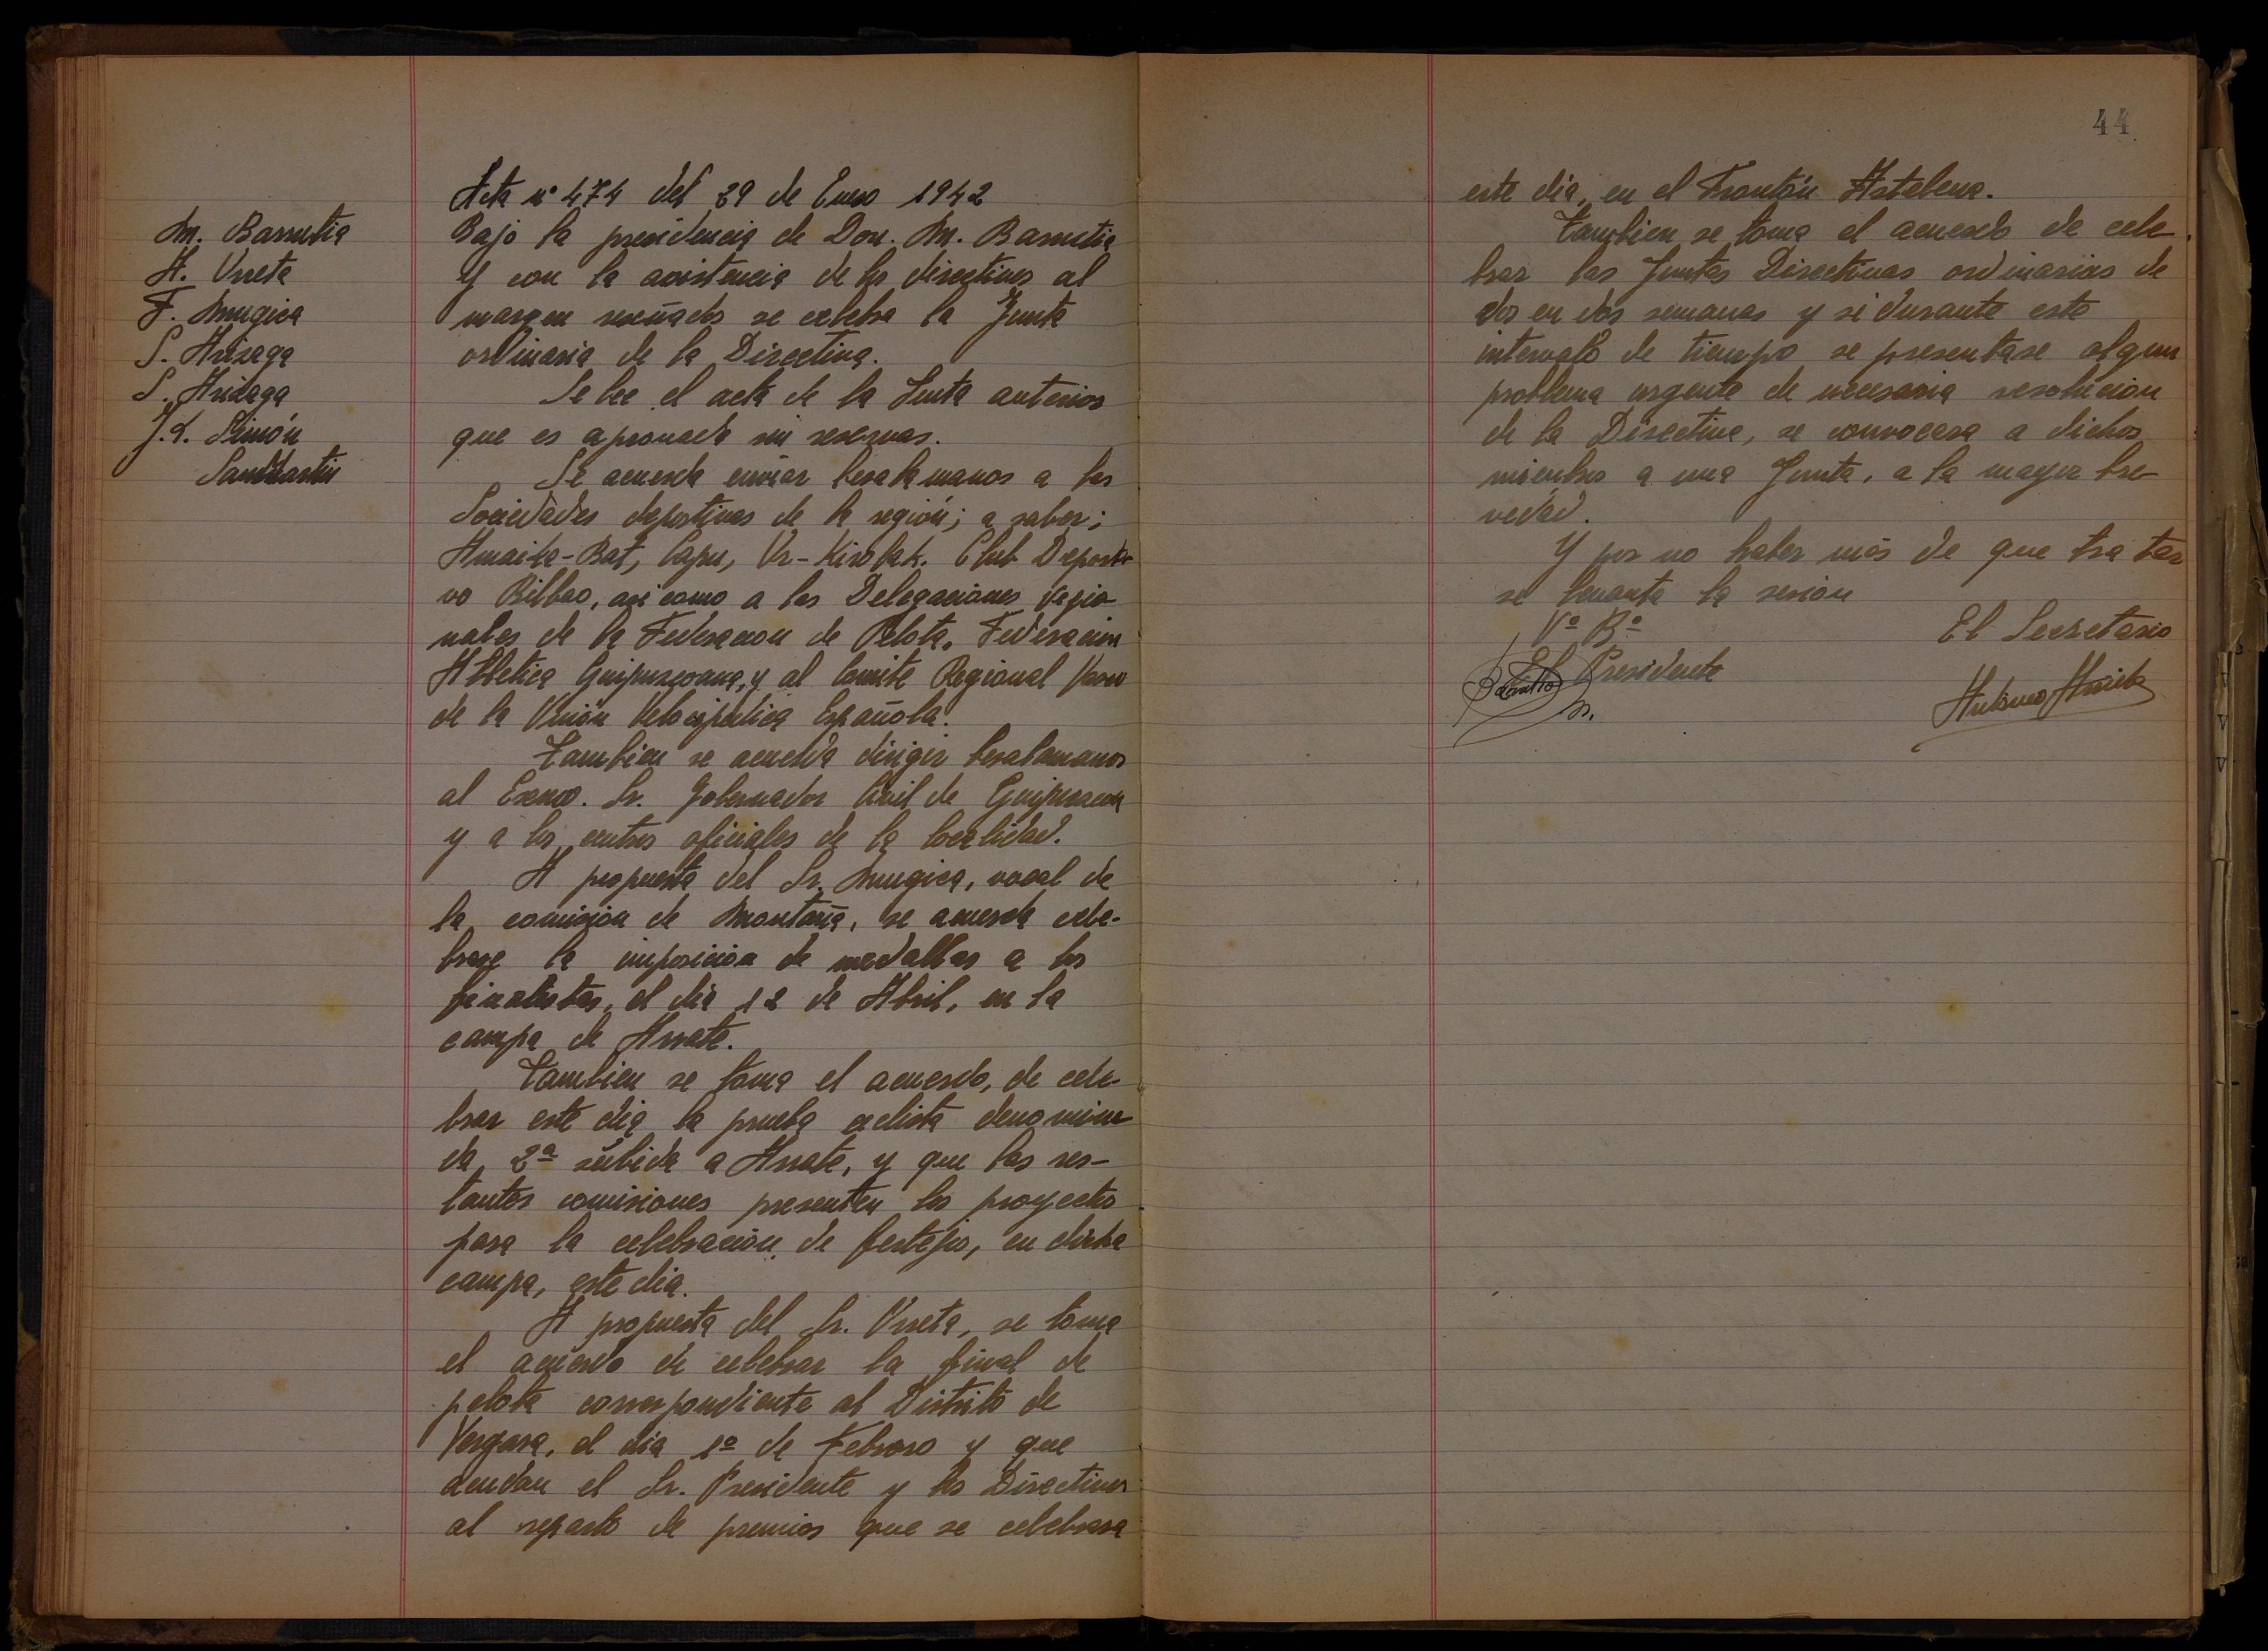 Acta nº 474 del 29 de Enero 1942
M. Barrutia
A. Urreta
F. Mugica
S. Arizaga
S. Arizaga
J.L. Simón
SanMartin
Bajo la presidencia de Don. M. Barrutia
Y con la asistencia de los directivos al
margen reseñados se celebra la Junta
ordinaria de la Directiva.
Se lee el acta de la Junta anterior
que es aprouada sin reservas.
Se acuerda enviar besalamanos a las
Sociedades deportivas de la región; a saber;
Amaika-Bat, Capu, Ur-Kirolak. Club Deporti-
vo Bilbao, asi como a las Delegaciones Regio-
nales de la Federacion de Pelota, Federacion
Atletica Guipuzcoana, y al Comite Regional Vasco
de la Unión Velocipedica Española.
Tambien se acuerda dirigir besalamanos
al Excmo. Sr. Gobernador Civil de Guipuzcoa
y a los centros oficiales de la localidad.
A propuesta del Sr. Mugica, vocal de
la comision de Montaña, se acuerda cele-
brar la imposicion de medallas a los
finalistas, el dia 12 de Abril, en la
campa de Arrate.
Tambien se toma el acuerdo, de cele-
brar este dia la prueba ciclista denomina-
da, 2ª subida a Arrate, y que las res-
tantes comisiones presenten los proyectos
para la celebracion de festejos, en dicha
campa, este dia.
A propuesta del Sr. Urreta, se toma
el acuerdo de celebrar la final de
pelota correspondiente al Distrito de
Vergara, el dia 1º de Febrero y que
acudan el Sr. Presidente y los Directivos
al reparto de premios que se celebrara
44
este dia, en el Frontón Astelena.
Tambien se toma el acuerdo de cele-
brar las Juntas Directivas ordinarias de
dos en dos semanas y si durante este
intervalo de tiempo se presentase algun
problema urgente de necesaria resolucion
de la Directiva, se convocara a dichos
miembros a una Junta, a la mayor bre-
vedad.
Y por no haber más de que tratar
se levanta la sesion
Vº Bº
El Secretario
El Presidente
Antonio